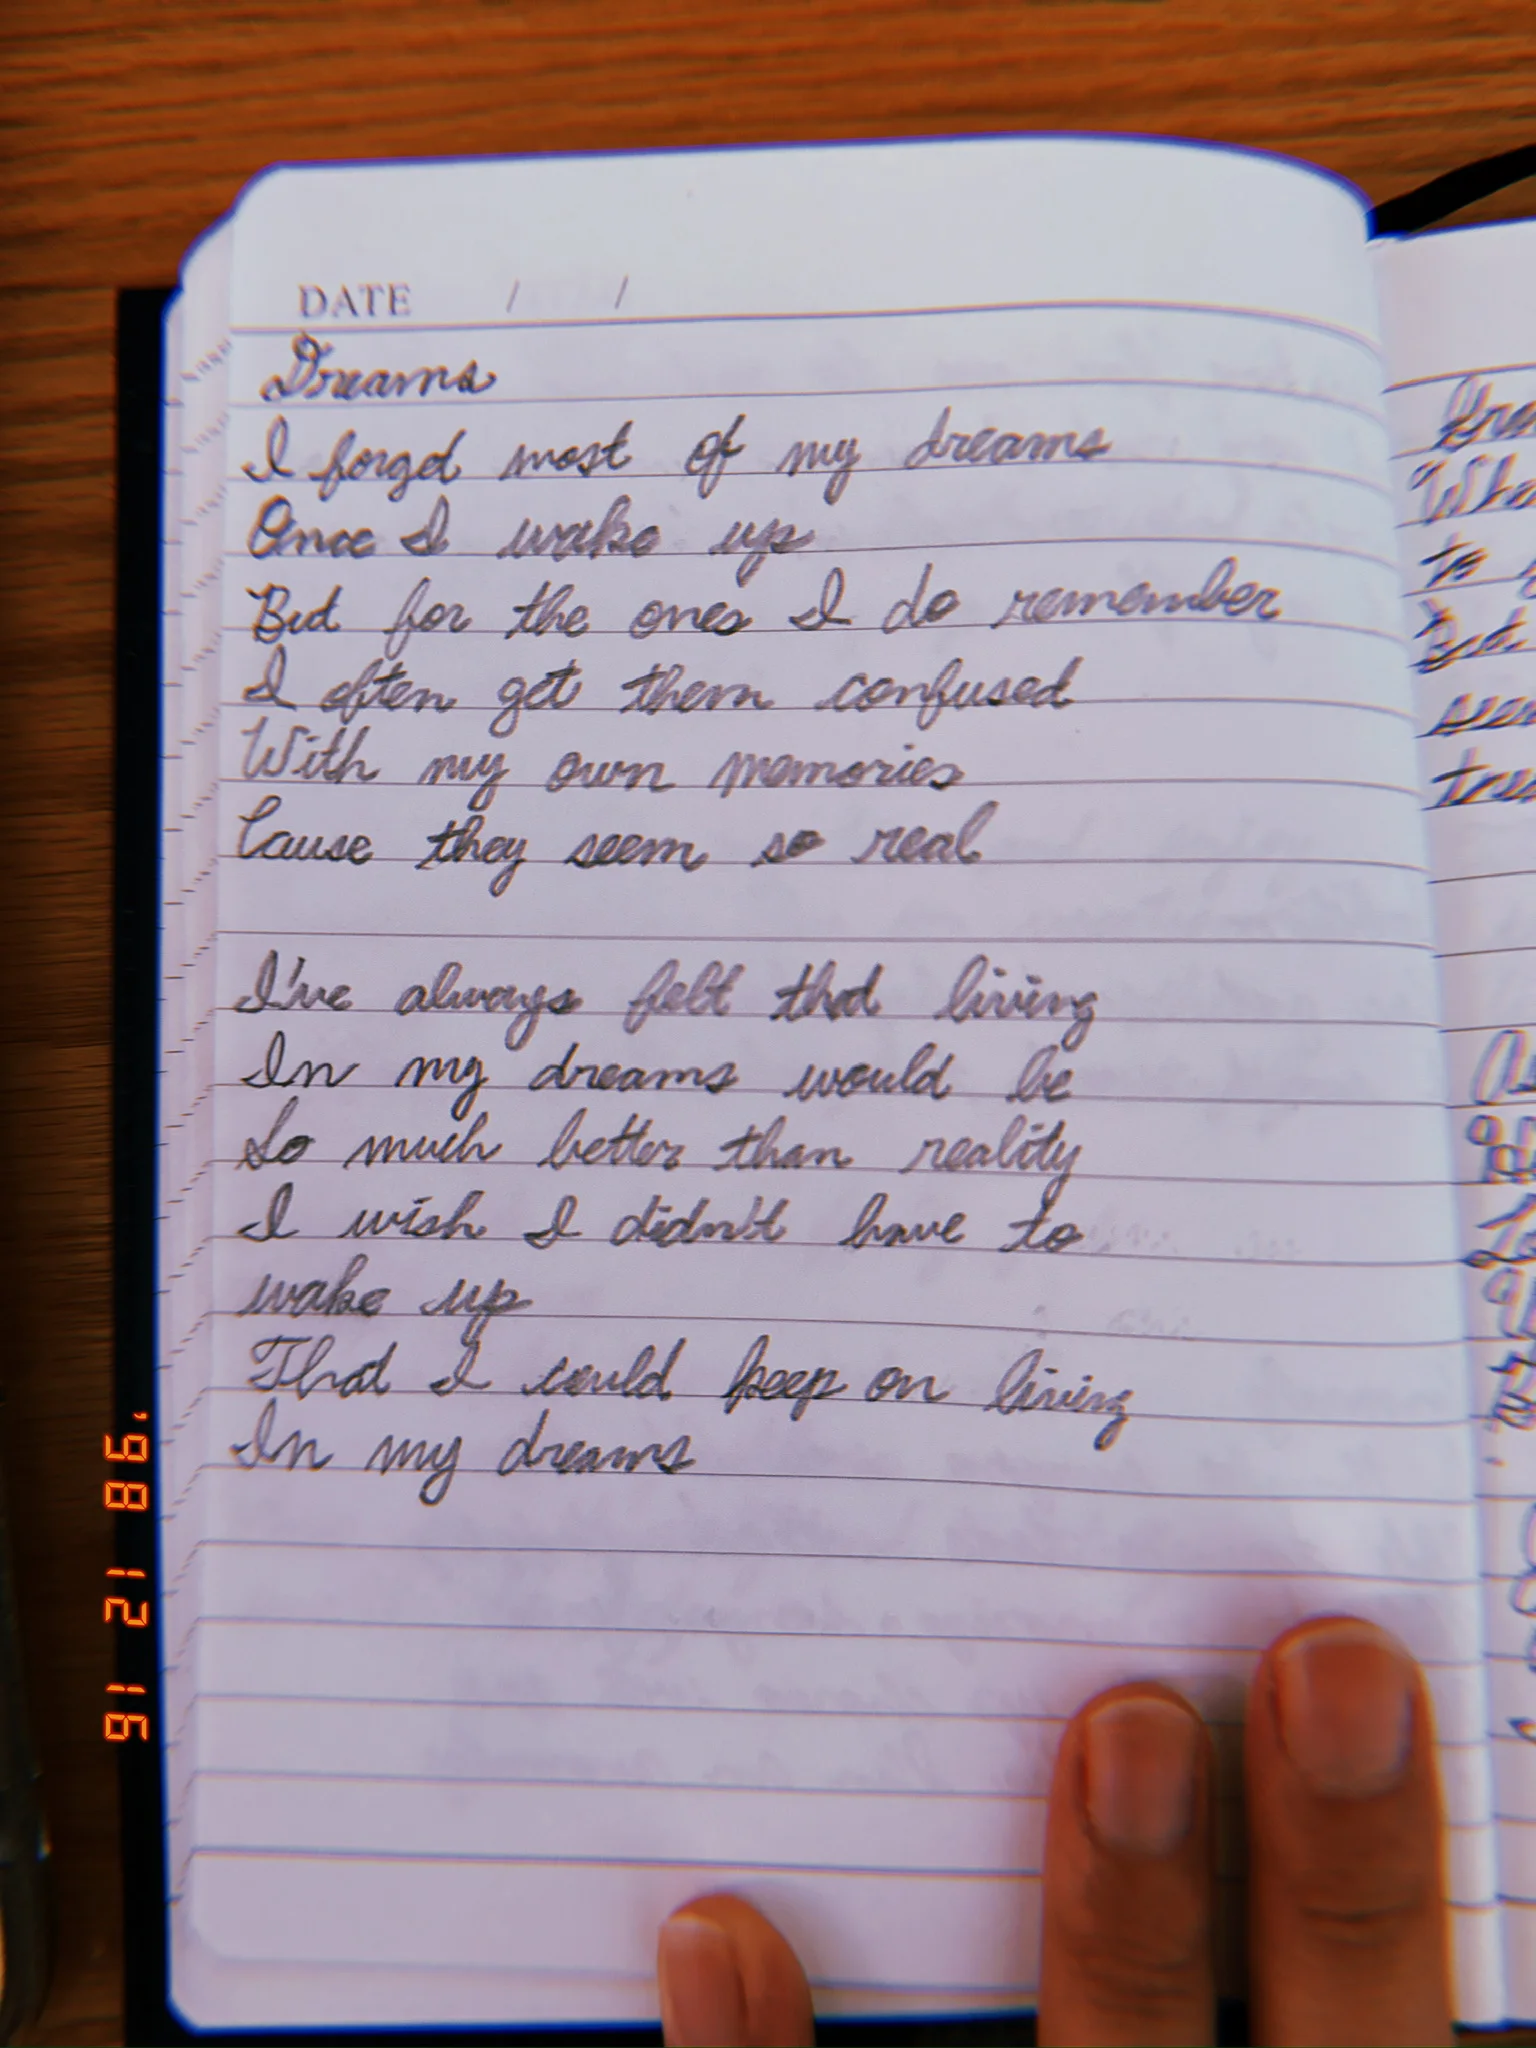 DATE / /
Dreams
I forget most of my dreams
Once I wake up
But for the ones I do remember
I often get them confused
With my own memories
Cause they seem so real
I've always felt that living
In my dreams would be
So much better than reality
I wish I didn't have to
wake up
That I could keep on living
In my dreams
'98 12 16
to